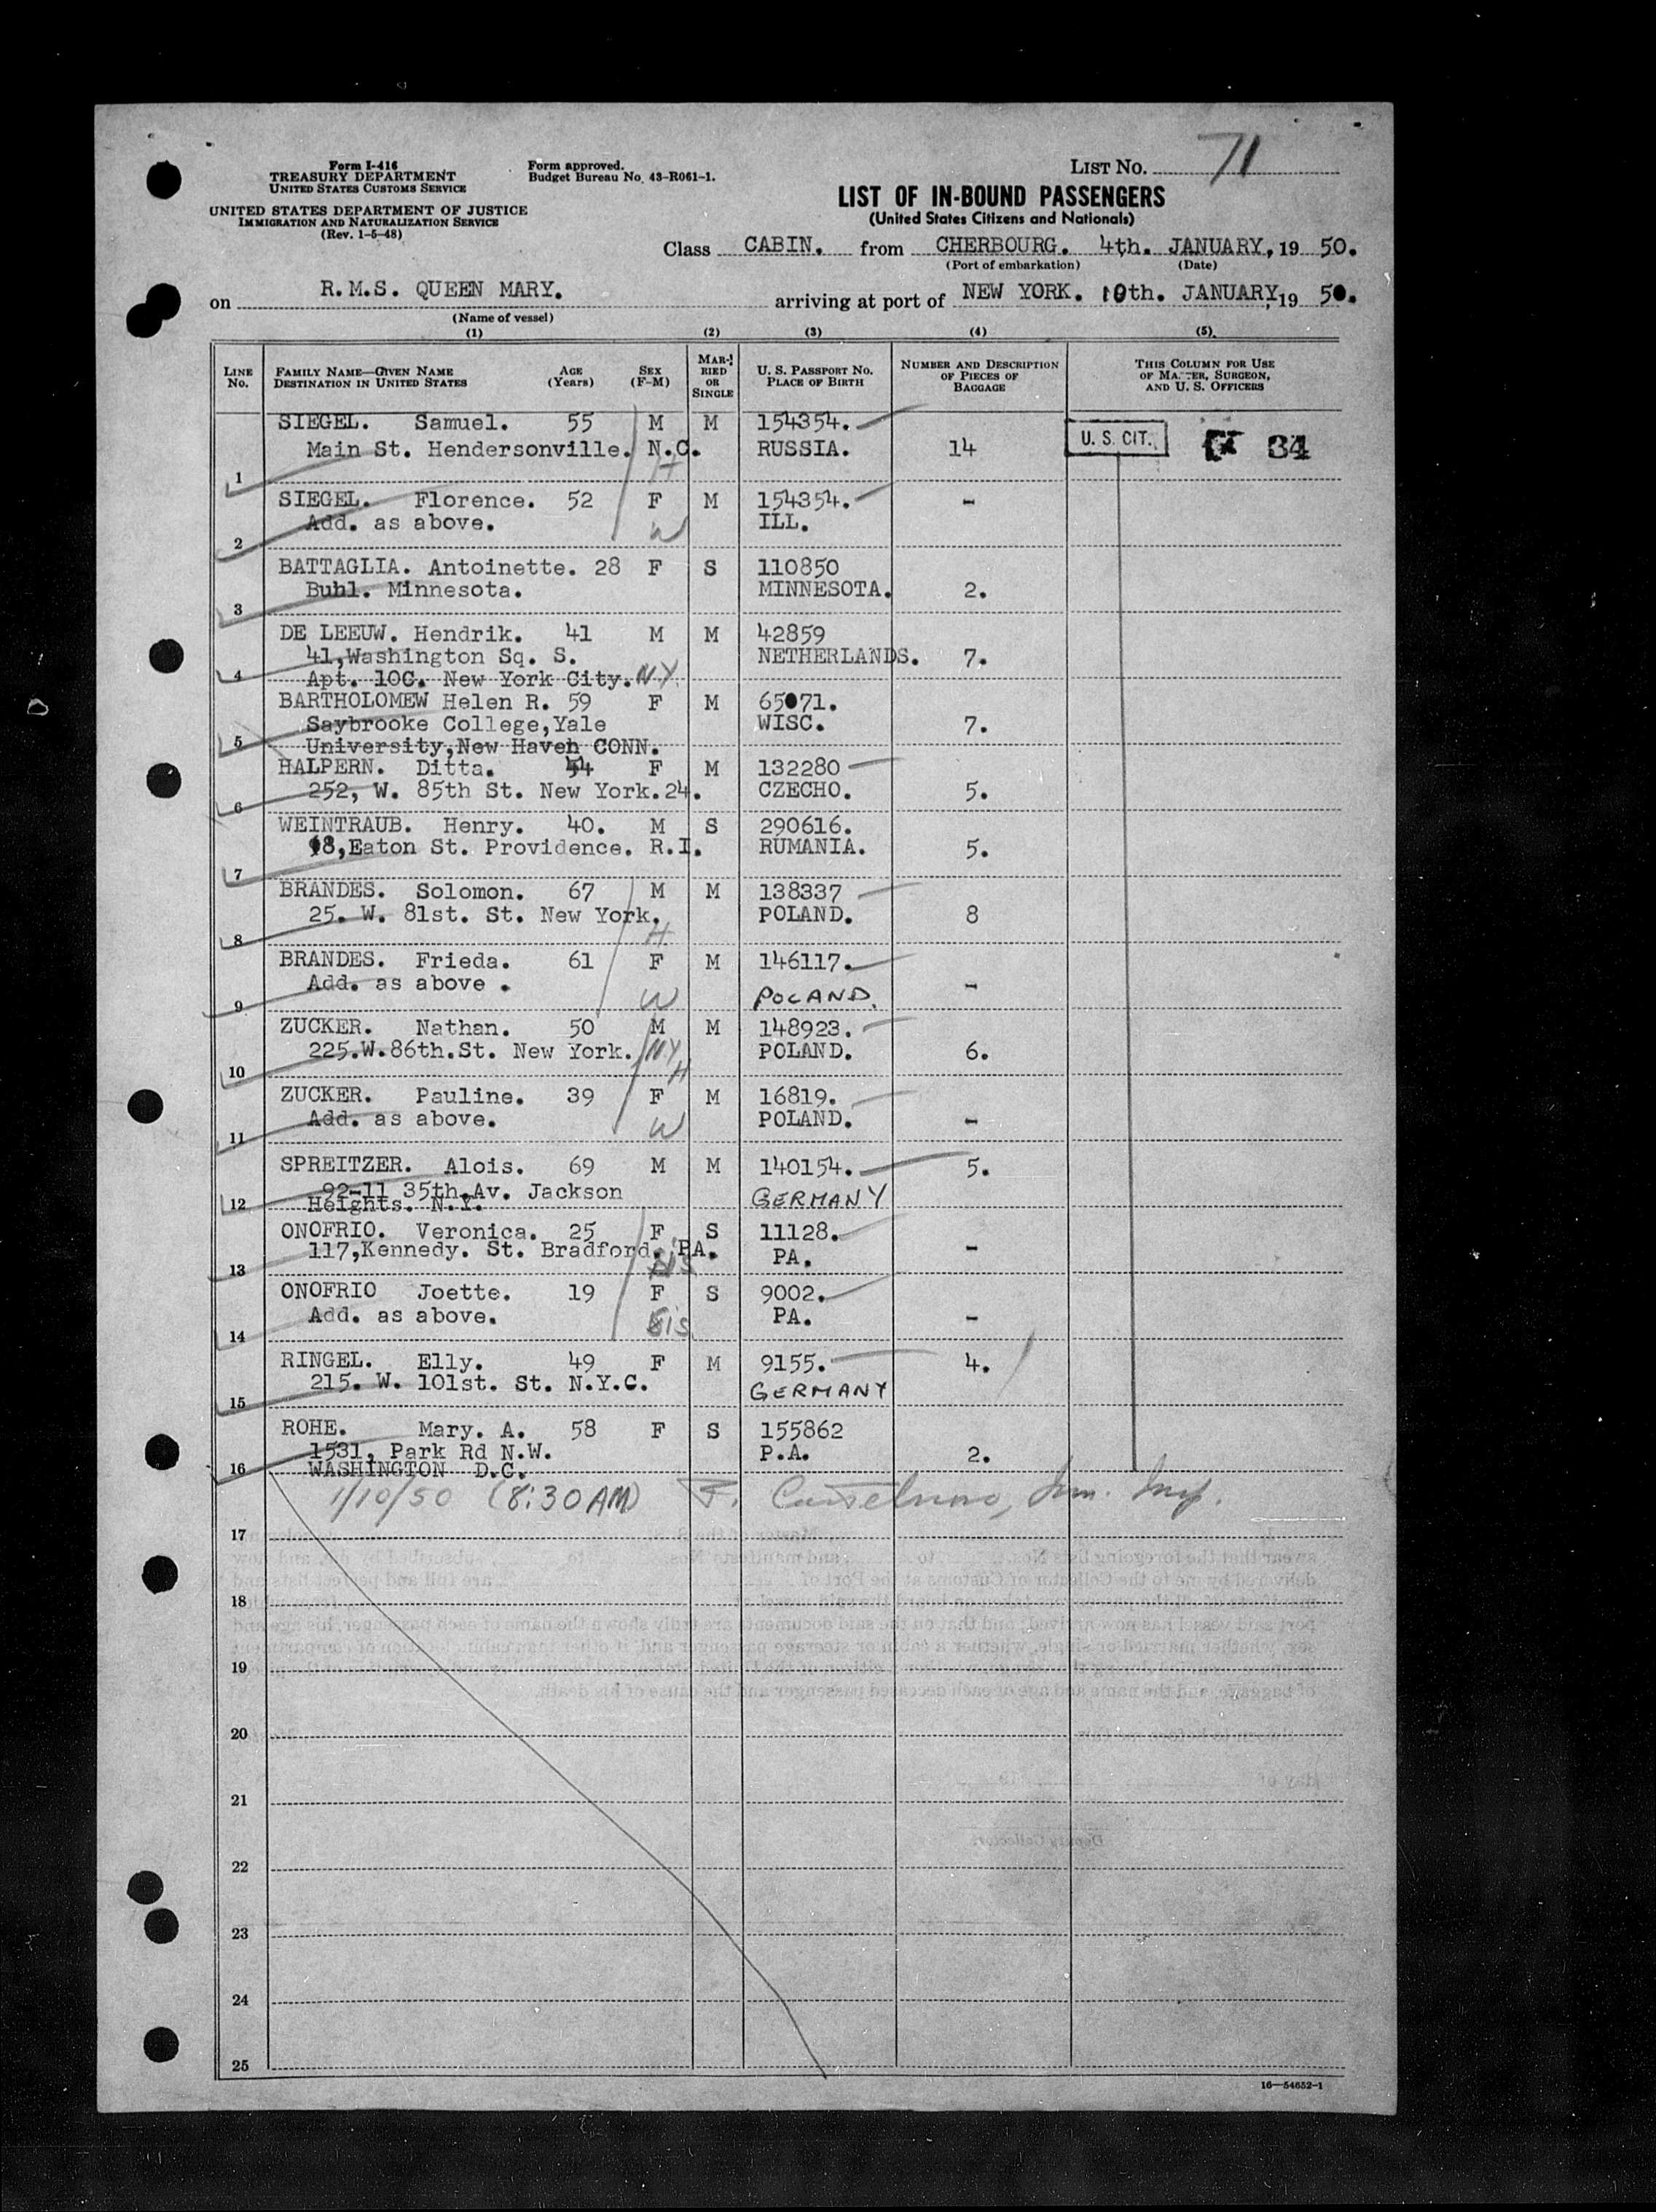 Form I-416
TREASURY DEPARTMENT
UNITED STATES CUSTOMS SERVICE
UNITED STATES DEPARTMENT OF JUSTICE
IMMIGRATION AND NATURALIZATION SERVICE
(Rev. 1-5-48)
Form approved.
Budget Bureau No. 43-R061-1.
LIST No. 71
LIST OF IN-BOUND PASSENGERS
(United States Citizens and Nationals)
Class CABIN. from CHERBOURG. 4th. JANUARY, 19 50.
(Port of embarkation) (Date)
on R.M.S. QUEEN MARY. arriving at port of NEW YORK. 10th. JANUARY, 19 50.
(Name of vessel)
(1) (2) (3) (4) (5)
LINE No. FAMILY NAME—GIVEN NAME DESTINATION IN UNITED STATES AGE (Years) SEX (F-M) MARRIED OR SINGLE U. S. PASSPORT No. PLACE OF BIRTH NUMBER AND DESCRIPTION OF PIECES OF BAGGAGE THIS COLUMN FOR USE OF MASTER, SURGEON, AND U. S. OFFICERS
SIEGEL. Samuel. 55 M M 154354.
Main St. Hendersonville. N.C. RUSSIA. 14 U. S. CIT. 34
1 H
SIEGEL. Florence. 52 F M 154354. -
Add. as above. W ILL.
2
BATTAGLIA. Antoinette. 28 F S 110850
Buhl. Minnesota. MINNESOTA. 2.
3
DE LEEUW. Hendrik. 41 M M 42859
41,Washington Sq. S. NETHERLANDS. 7.
4 Apt. 10C. New York City. N.Y.
BARTHOLOMEW Helen R. 59 F M 65071.
Saybrooke College,Yale WISC. 7.
5 University,New Haven CONN.
HALPERN. Ditta. 54 F M 132280
252, W. 85th St. New York.24. CZECHO. 5.
6
WEINTRAUB. Henry. 40. M S 290616.
18,Eaton St. Providence. R.I. RUMANIA. 5.
7
BRANDES. Solomon. 67 M M 138337
25. W. 81st. St. New York. POLAND. 8
8 H
BRANDES. Frieda. 61 F M 146117.
Add. as above . -
9 W POLAND.
ZUCKER. Nathan. 50 M M 148923.
225.W.86th.St. New York. N.Y. POLAND. 6.
10 H
ZUCKER. Pauline. 39 F M 16819.
Add. as above. W POLAND. -
11
SPREITZER. Alois. 69 M M 140154. 5.
92-11 35th.Av. Jackson GERMANY
12 Heights. N.Y.
ONOFRIO. Veronica. 25 F S 11128.
117,Kennedy. St. Bradford. PA. PA. -
13 Sis
ONOFRIO Joette. 19 F S 9002.
Add. as above. Sis PA. -
14
RINGEL. Elly. 49 F M 9155. 4.
215. W. 101st. St. N.Y.C. GERMANY
15
ROHE. Mary. A. 58 F S 155862
1531, Park Rd N.W. P.A. 2.
16 WASHINGTON D.C.
1/10/50 (8:30AM) F. Imm. Insp.
17
18
19
20
21
22
23
24
25
16—54652-1